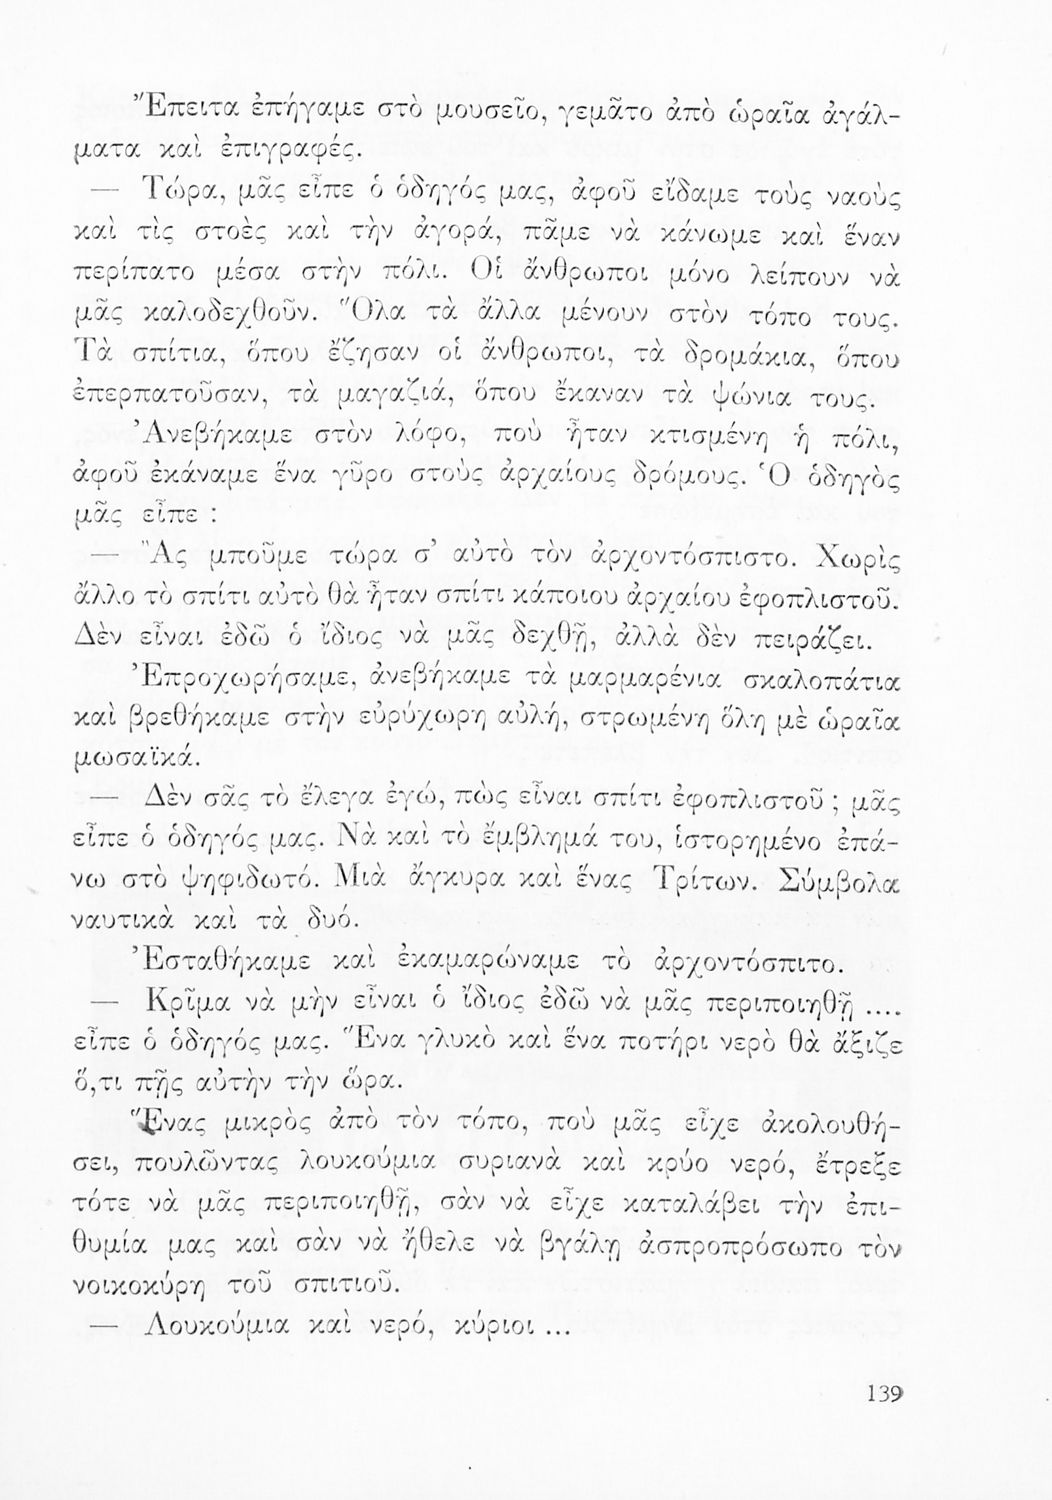 Ἔπειτα ἐπήγαμε στὸ μουσεῖο, γεμᾶτο ἀπὸ ὡραῖα ἀγάλ-
ματα καὶ ἐπιγραφές.
— Τώρα, μᾶς εἶπε ὁ ὁδηγός μας, ἀφοῦ εἴδαμε τοὺς ναοὺς
καὶ τὶς στοὲς καὶ τὴν ἀγορά, πᾶμε νὰ κάνωμε καὶ ἕναν
περίπατο μέσα στὴν πόλι. Οἱ ἄνθρωποι μόνο λείπουν νὰ
μᾶς καλοδεχθοῦν. Ὅλα τὰ ἄλλα μένουν στὸν τόπο τους.
Τὰ σπίτια, ὅπου ἔζησαν οἱ ἄνθρωποι, τὰ δρομάκια, ὅπου
ἐπερπατοῦσαν, τὰ μαγαζιά, ὅπου ἔκαναν τὰ ψώνια τους.
Ἀνεβήκαμε στὸν λόφο, ποὺ ἦταν κτισμένη ἡ πόλι,
ἀφοῦ ἐκάναμε ἕνα γῦρο στοὺς ἀρχαίους δρόμους. Ὁ ὁδηγὸς
μᾶς εἶπε :
— Ἂς μποῦμε τώρα σ’ αὐτὸ τὸν ἀρχοντόσπιστο. Χωρὶς
ἄλλο τὸ σπίτι αὐτὸ θὰ ἦταν σπίτι κάποιου ἀρχαίου ἐφοπλιστοῦ.
Δὲν εἶναι ἐδῶ ὁ ἴδιος νὰ μᾶς δεχθῇ, ἀλλὰ δὲν πειράζει.
Ἐπροχωρήσαμε, ἀνεβήκαμε τὰ μαρμαρένια σκαλοπάτια
καὶ βρεθήκαμε στὴν εὐρύχωρη αὐλή, στρωμένη ὅλη μὲ ὡραῖα
μωσαϊκά.
— Δὲν σᾶς τὸ ἔλεγα ἐγώ, πὼς εἶναι σπίτι ἐφοπλιστοῦ ; μᾶς
εἶπε ὁ ὁδηγός μας. Νὰ καὶ τὸ ἔμβλημά του, ἱστορημένο ἐπά-
νω στὸ ψηφιδωτό. Μιὰ ἄγκυρα καὶ ἕνας Τρίτων. Σύμβολα
ναυτικὰ καὶ τὰ δυό.
Ἐσταθήκαμε καὶ ἐκαμαρώναμε τὸ ἀρχοντόσπιτο.
— Κρῖμα νὰ μὴν εἶναι ὁ ἴδιος ἐδῶ νὰ μᾶς περιποιηθῇ ....
εἶπε ὁ ὁδηγός μας. Ἕνα γλυκὸ καὶ ἕνα ποτήρι νερὸ θὰ ἄξιζε
ὅ,τι πῇς αὐτὴν τὴν ὥρα.
Ἕνας μικρὸς ἀπὸ τὸν τόπο, ποὺ μᾶς εἶχε ἀκολουθή-
σει, πουλῶντας λουκούμια συριανὰ καὶ κρύο νερό, ἔτρεξε
τότε νὰ μᾶς περιποιηθῇ, σὰν νὰ εἶχε καταλάβει τὴν ἐπι-
θυμία μας καὶ σὰν νὰ ἤθελε νὰ βγάλῃ ἀσπροπρόσωπο τὸν
νοικοκύρη τοῦ σπιτιοῦ.
— Λουκούμια καὶ νερό, κύριοι ...
139